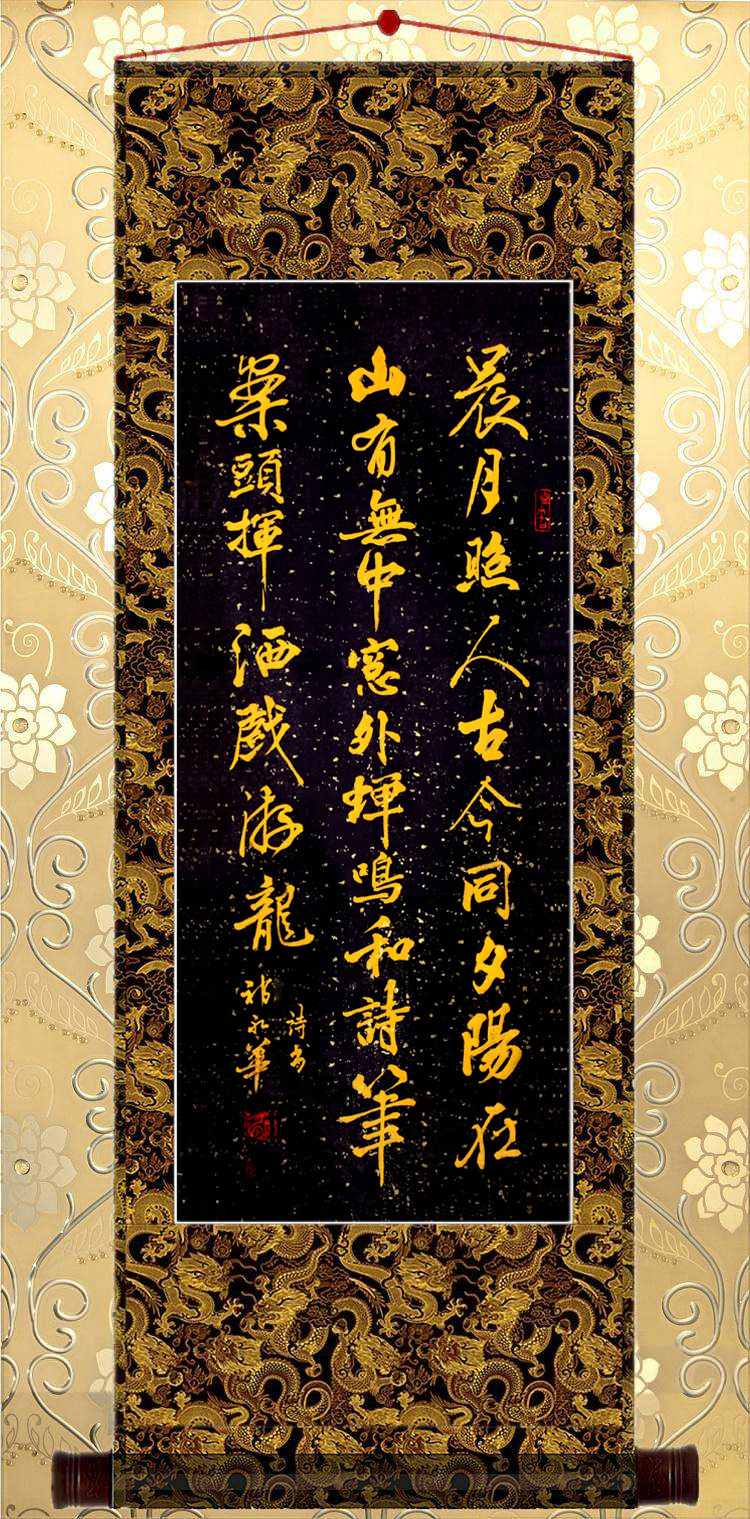 晨月照人古今同夕陽在
山有無中窓外蟬鳴和詩筆
案頭揮洒戲游龍
詩書
永華